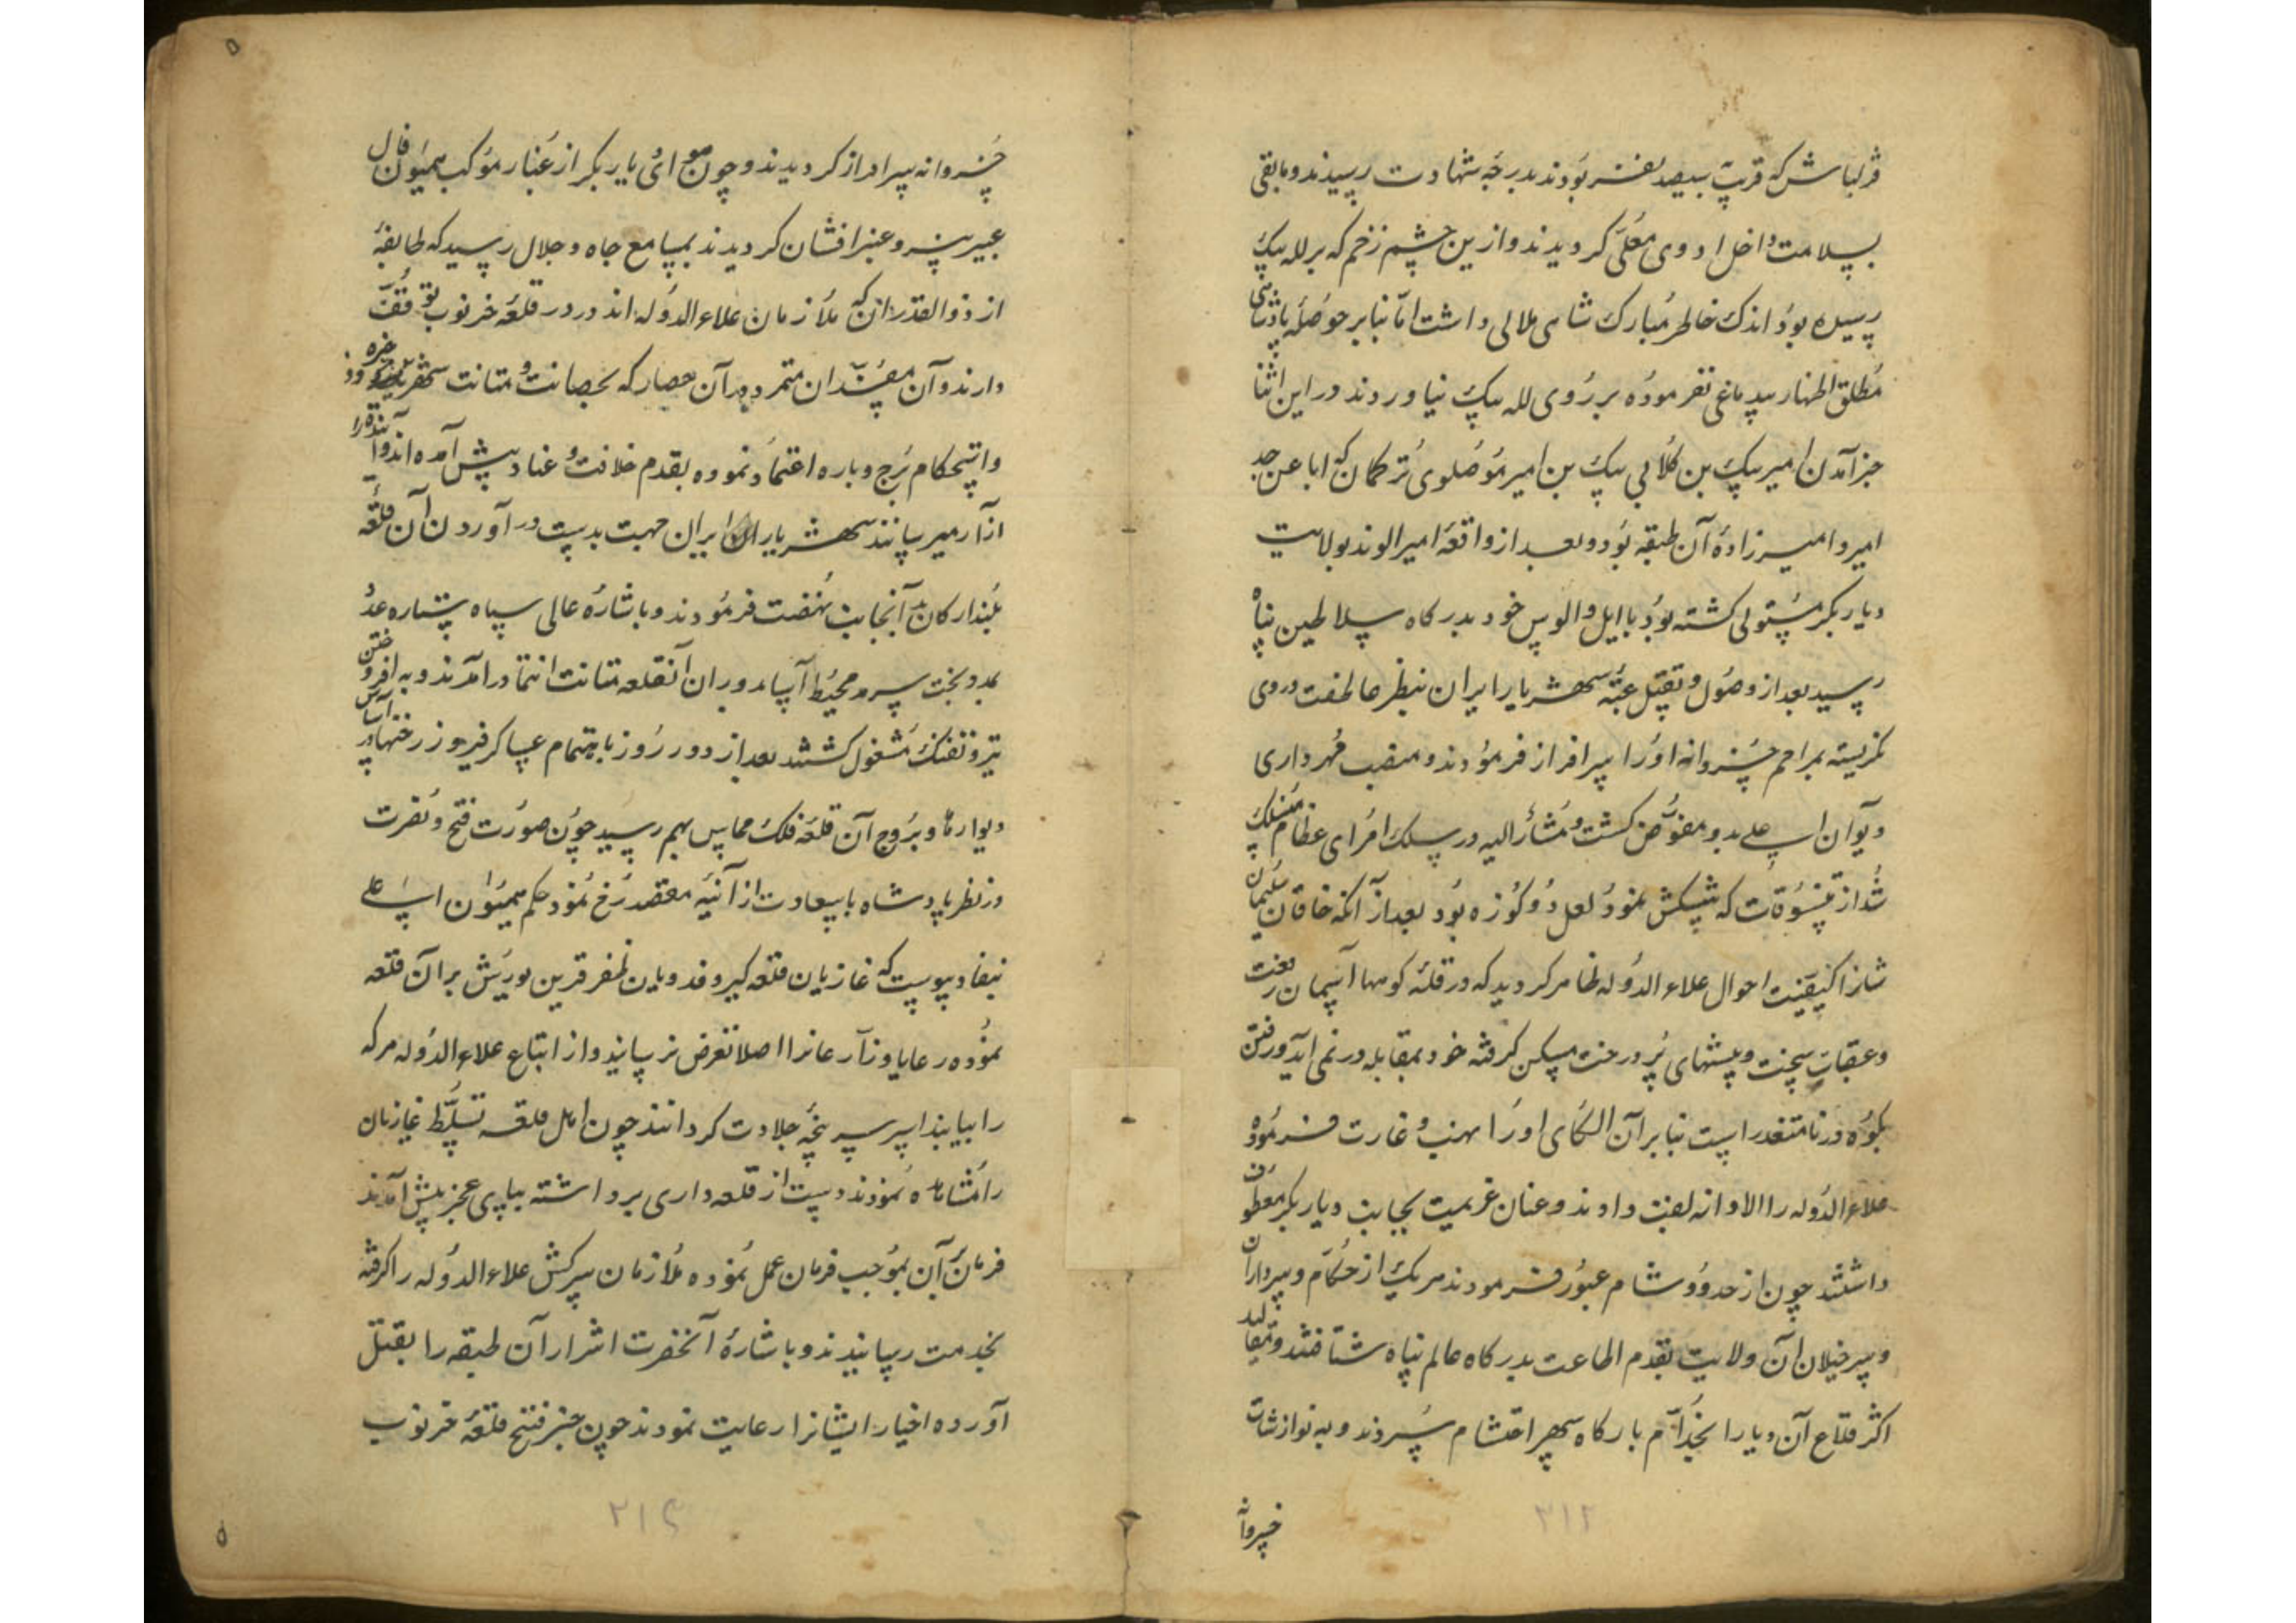 قزلباش که قریب سیصد نفر بودند بدرجه شهادت رسیدند و مابقی
بسلامت داخل اردوی معلی کردیدند و ازین چشم زخم که بر لله بیک
رسیده بود اندک خاطر مبارک شاهی ملالی داشت اما بنا بر حوصله پادشاهی
مطلق اظهار بیدماغی نفرموده بر روی لله بیک نیاوردند در این اثنا
خبر آمدن امیر بیک بن کلابی بیک بن امیر موصلوی ترکمان که ابا عن جد
امیر و امیرزاده آن طبقه بود و بعد از واقعه امیر الوند بولایت
دیار بکر مستولی کشته بود با ایل و الوس خود بدرکاه سلاطین پناه
رسید بعد از وصول و تقبیل عتبه سپهر شهریار ایران بنظر عاطفت در وی
نکریسته بمراحم خسروانه او را سرافراز فرمودند و منصب مهرداری
دیوان اعلی بدو مفوض کشت و مشار الیه در سلک امرای عظام منسلک
شد از تنسوقات که پیشکش نمود لعل دو کوزه بود بعد از آنکه خاقان سلیمان
شانرا کیفیت احوال علاء الدوله ظاهر کردید که در قله کوهها آسمان رفعت
و عقبات سخت و بیشهای پر درخت مسکن کرفته خود بمقابله در نمی آید و رفتن
بکوه درنا متعذر است بنابر آن الکای او را نهب و غارت فرموده
علاء الدوله را الاوانه لعنت دادند و عنان عزیمت بجانب دیار بکر معطوف
داشتند چون از حدود شام عبور فرمودند هر یک از حکام و سرداران
و سرخیلان آن ولایت بقدم اطاعت بدرکاه عالم پناه شتافتند و مقالید
اکثر قلاع آن دیار را بخدام بارکاه سپهر احتشام سپردند و به نوازشات
خسروانه
۳۱۲
خسروانه سرافراز کردیدند و چون هوای دیار بکر از غبار موکب همیون فال
عبیر بیز و عنبر افشان کردیدند بمسامع جاه و جلال رسید که طایفه
از ذوالقدران که ملازمان علاء الدوله اند در در قلعه خرتوب توقف
دارند و آن مفسدان متمرد در آن حصار که بحصانت و متانت
و استحکام برج و باره اعتماد نموده بقدم خلافت و عناد پیش آمده اند
شهریار ایران جهت بدست در آوردن آن قلعه
بلند ارکان بدآنجانب نهضت فرمودند و باشاره عالی سپاه ستاره عدد
بمدد بخت سرمد محیط آسا بدوران آنقلعه متانت انتما در آمدند و به افروختن آتش
تیر و تفنک مشغول کشتند بعد از دو روز باهتمام عساکر فیروز رخنها در
دیوارها و بروج آن قلعه فلک مماس بهم رسید چون صورت فتح و نصرت
در نظر پادشاه با سعادت از آئینه مقصد رخ نمود حکم همیون اعلی
بنفاد پیوست که غازیان قلعه کیر و فدویان ظفر قرین یورش بر آن قلعه
نموده رعایا و زارعانرا اصلا تعرض نرسانید و از اتباع علاء الدوله هر که
را بیابند اسیر سرپنجه جلادت کردانند چون اهل قلعه تسلط غازیان
را مشاهده نمودند دست از قلعه داری برداشته بپای عجز پیش آمدند
فرمان بران بموجب فرمان عمل نموده ملازمان سرکش علاء الدوله را کرفته
بخدمت رسانیدند و باشاره آنحضرت اشرار آن طبقه را بقتل
آورده اخیار ایشانرا رعایت نمودند چون خبر فتح قلعه خرتوب